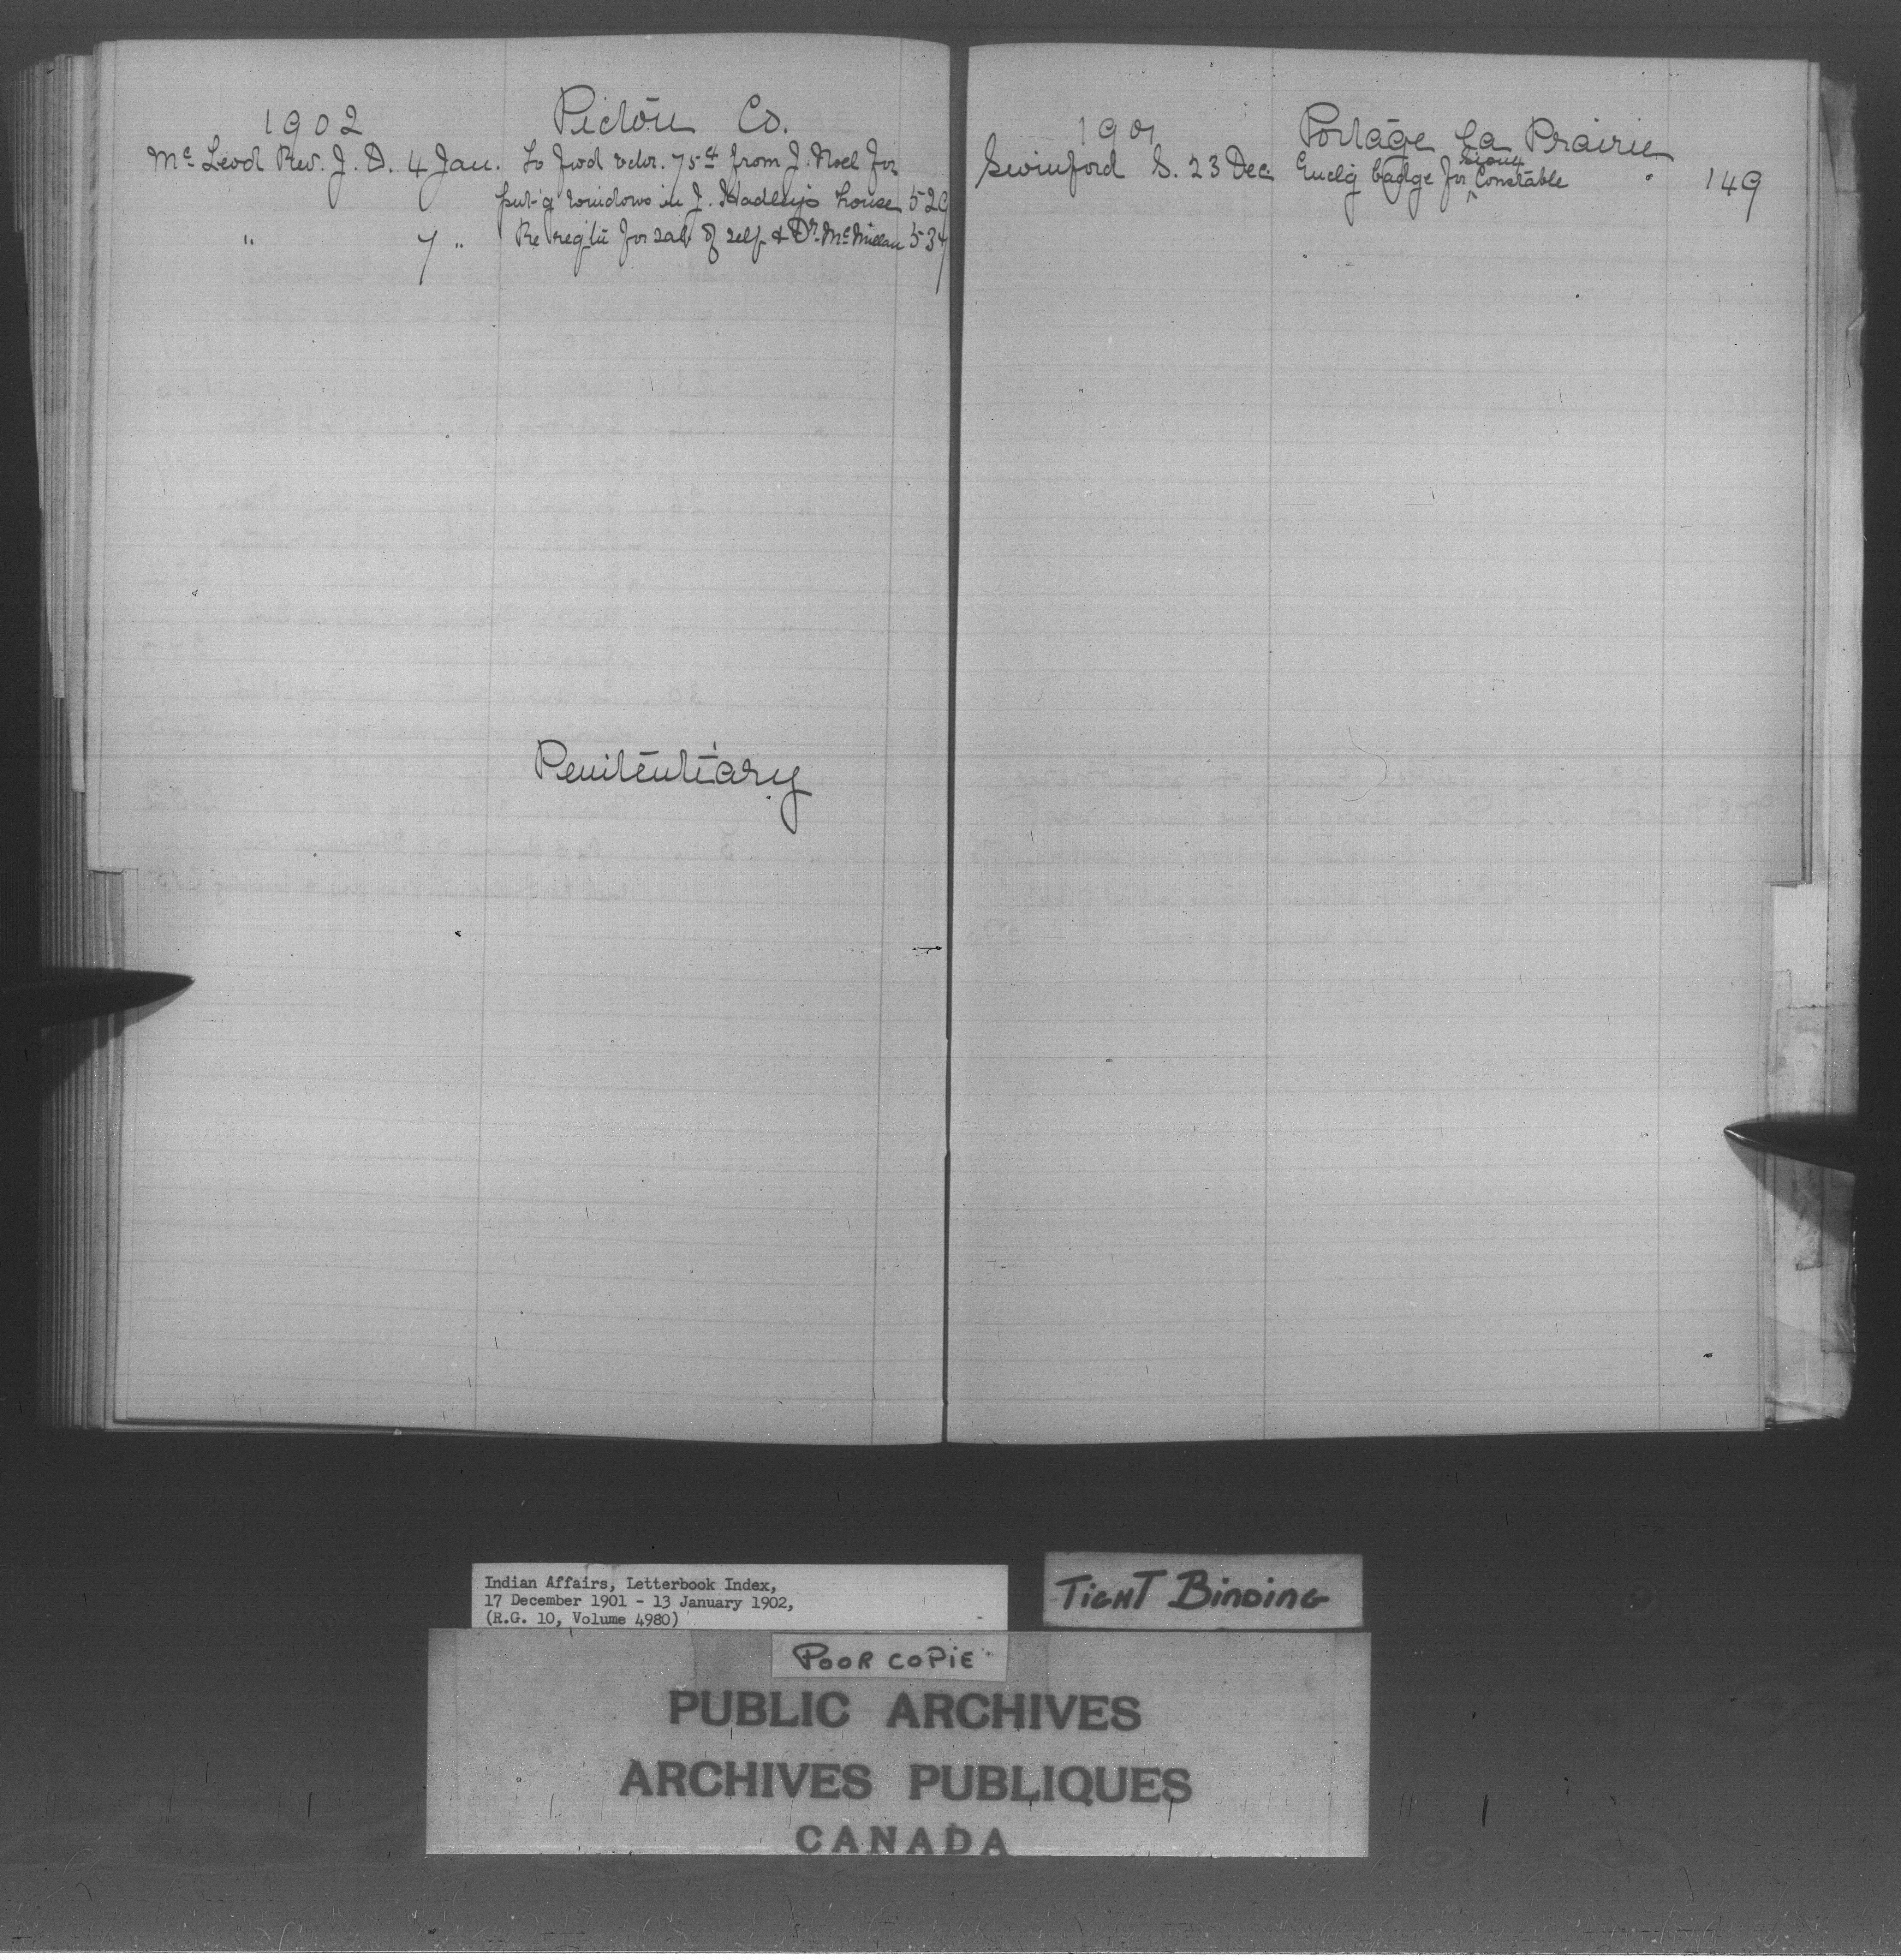 1902 Pictou Co.
Mc Leod Rev. J. D. 4 Jan. To fwd vchr. 75¢ from J. Noel for
put'g windows in J. Hadley's house 529
" 7 " Re reg'tn for sal. of self & Dr. McMillan 537
Penitentiary
1901 Portage la Prairie
Swinford S. 23 Dec. Enclg badge for Sioux Constable 149
Indian Affairs, Letterbook Index,
17 December 1901 - 13 January 1902,
(R.G. 10, Volume 4980)
TIGHT BINDING
POOR COPIE
PUBLIC ARCHIVES
ARCHIVES PUBLIQUES
CANADA